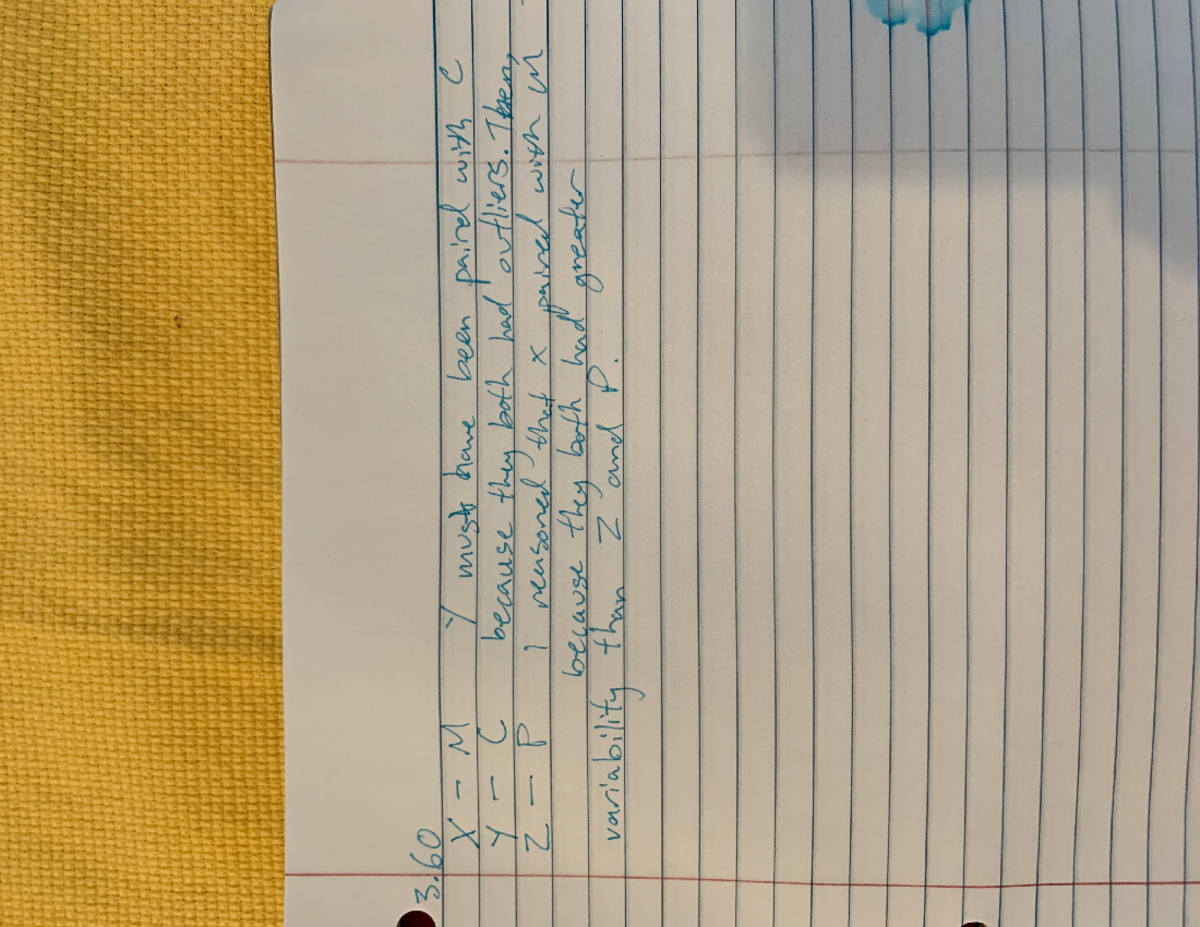 3.60
X - M Y must have been paired with C
Y - C because they both had outliers. Then,
Z - P I reasoned that X paired with M
because they both had greater
variability than Z and P.